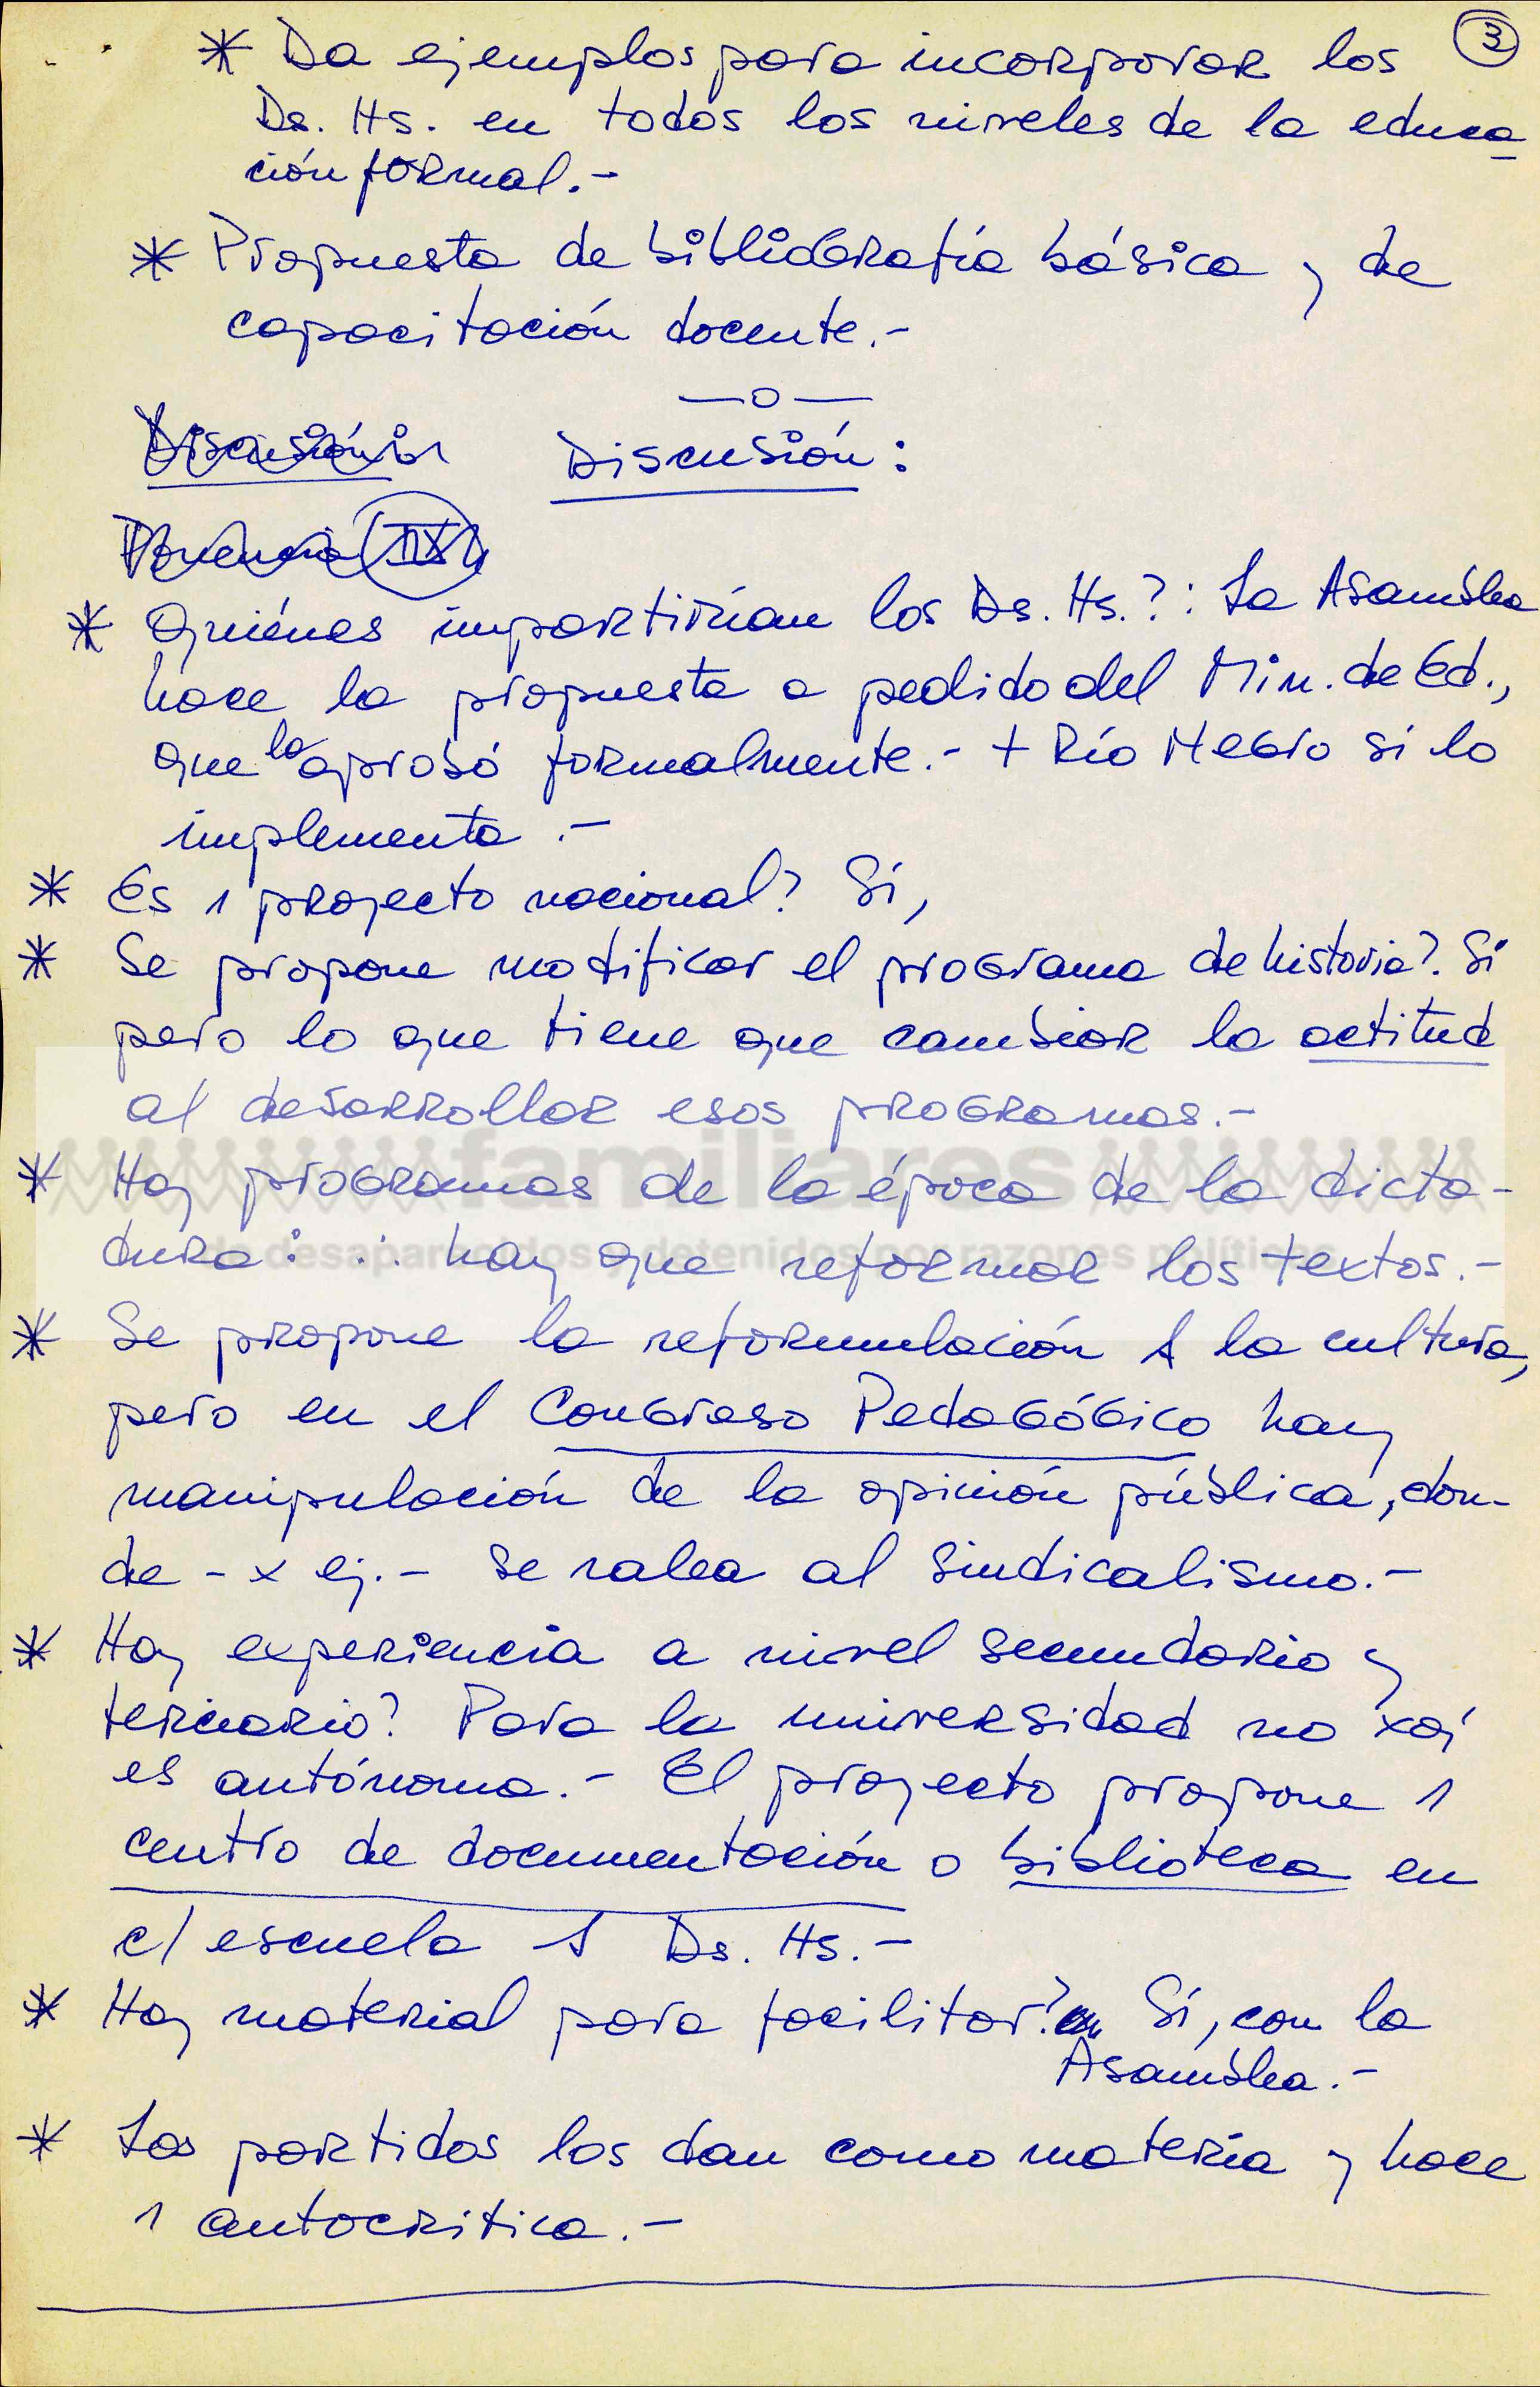 ③
* Da ejemplos para incorporar los
Ds. Hs. en todos los niveles de la educa
ción formal.-
* Propuesta de bibliografía básica y de
capacitación docente.-
—o—
Discusión:
* Quiénes impartirían los Ds. Hs.?: La Asamblea
hace la propuesta a pedido del Min. de Ed.,
que la aprobó formalmente.- + Río Negro si lo
implementa.-
* Es 1 proyecto nacional? Sí,
* Se propone modificar el programa de historia?. Sí
pero lo que tiene que cambiar la actitud
al desarrollar esos programas.-
familiares
* Hay programas de la época de la dicta-
de desaparecidos y detenidos por razones políticas
dura: ∴ hay que reformar los textos.-
* Se propone la reformulación la cultura,
pero en el Congreso Pedagógico hay
manipulación de la opinión pública, don-
de - x ej.- se ralea al sindicalismo.-
* Hay experiencia a nivel secundario y
terciario? Para la universidad no xq'
es autónoma.- El proyecto propone 1
centro de documentación o biblioteca en
c/ escuela Ds. Hs.-
* Hay material para facilitar? Sí, con la
Asamblea.-
* Los partidos los dan como materia y hace
1 autocritica.-